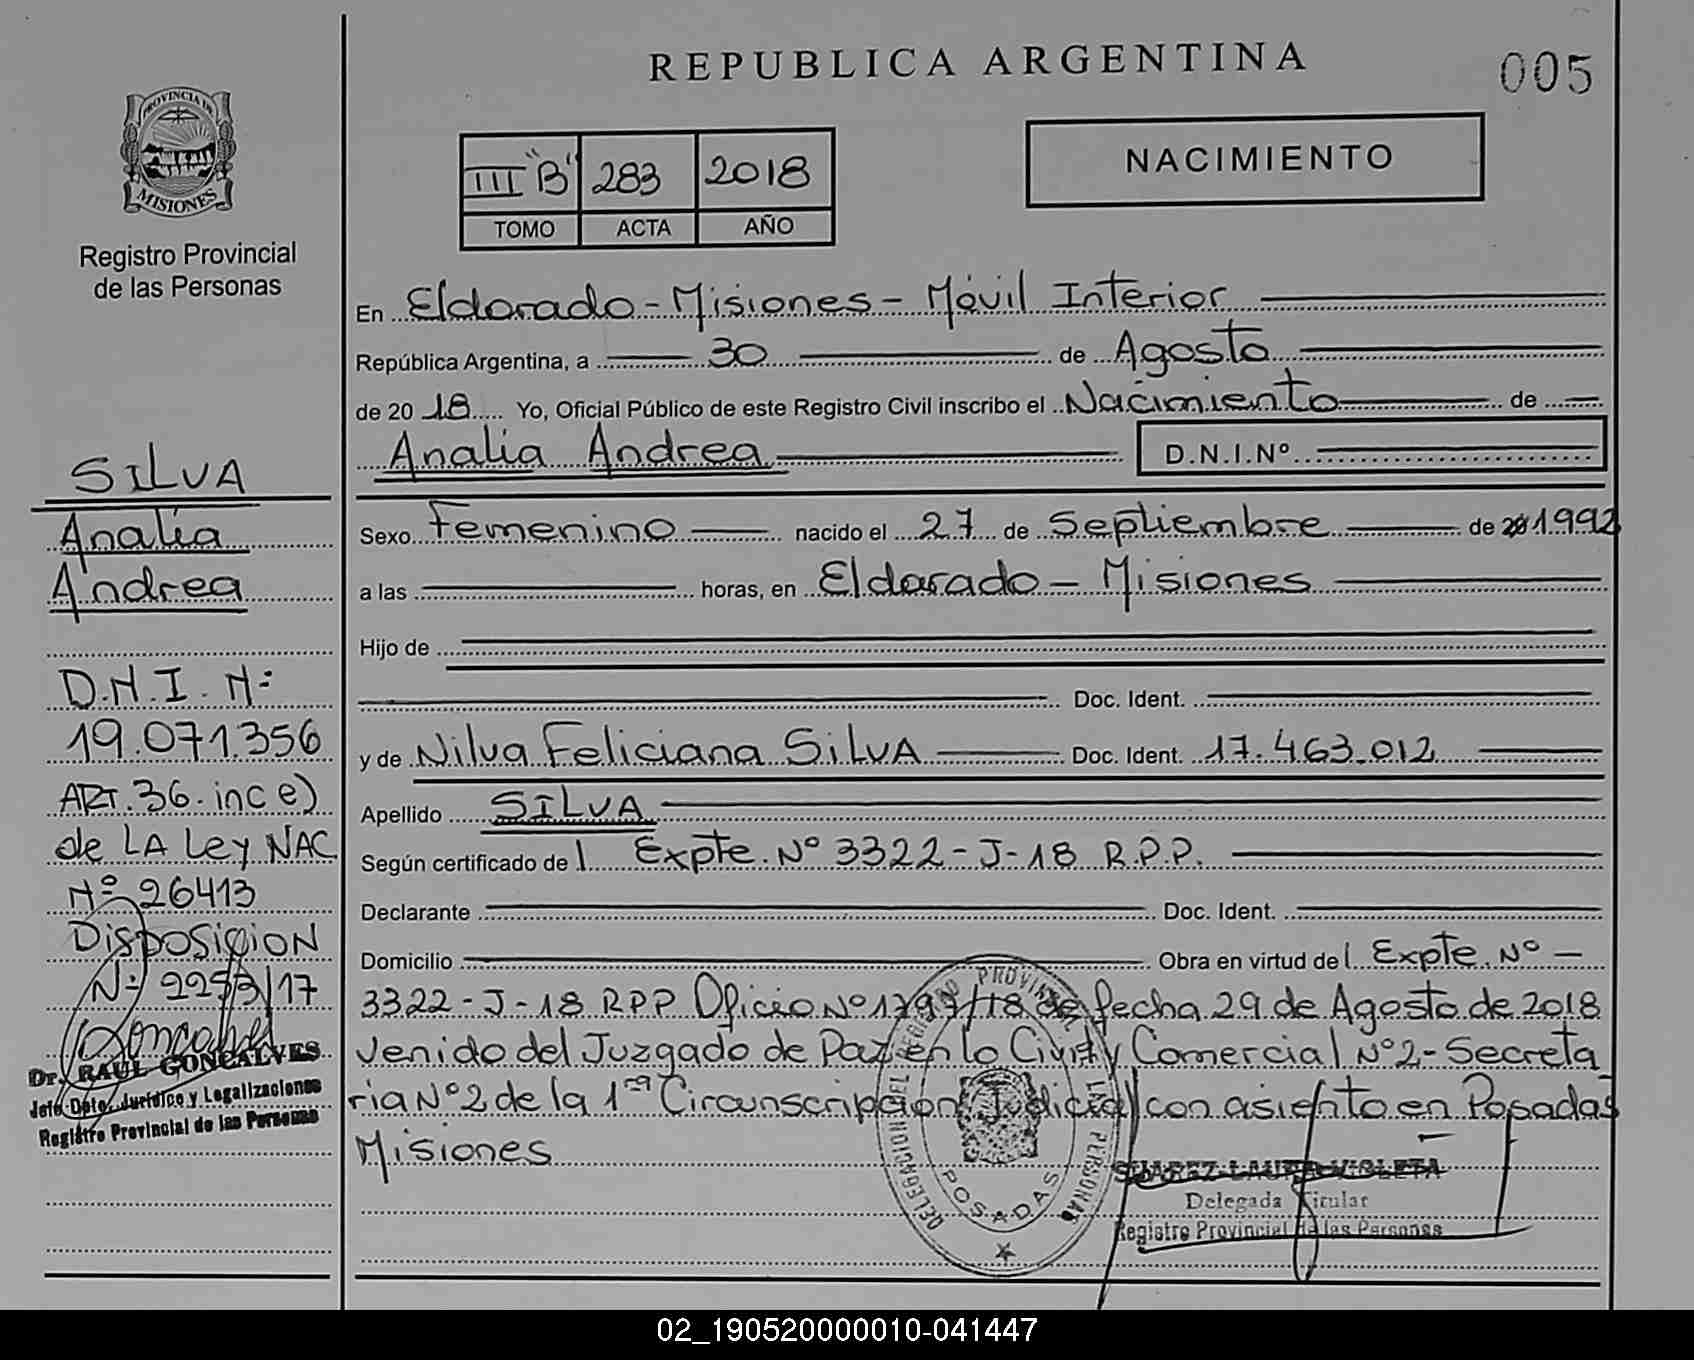 REPUBLICA ARGENTINA
005
PROVINCIA DE
MISIONES
Registro Provincial
de las Personas
III "B" 283 2018
TOMO ACTA AÑO
NACIMIENTO
En Eldorado - Misiones - Móvil Interior
República Argentina, a 30 de Agosto
de 20 18 Yo, Oficial Público de este Registro Civil inscribo el Nacimiento de
Analia Andrea D.N.I.Nº
Sexo Femenino nacido el 27 de Septiembre de 1992
a las horas, en Eldorado - Misiones
Hijo de
Doc. Ident.
y de Nilva Feliciana SILVA Doc. Ident. 17.463.012
Apellido SILVA
Según certificado de l Expte. Nº 3322-J-18 R.P.P.
Declarante Doc. Ident.
Domicilio Obra en virtud de l Expte. Nº -
3322-J-18 RPP Oficio Nº 1797/18 de fecha 29 de Agosto de 2018
venido del Juzgado de Paz en lo Civil y Comercial Nº2 - Secreta
ria Nº2 de la 1ra Circunscripcion Judicial con asiento en Posadas
Misiones
SILVA
Analia
Andrea
D.N.I. N:
19.071.356
ART. 36. inc e)
de LA Ley NAC
Nº 26413
DISPOSICION
N: 2253/17
Dr. RAUL GONCALVES
Jefe Dpto. Jurídico y Legalizaciones
Registro Provincial de las Personas
DELEGACION DEL REGISTRO PROVINCIAL DE LAS PERSONAS
POSADAS
SUAREZ LAURA VIOLETA
Delegada Titular
Registro Provincial de las Personas
02_190520000010-041447